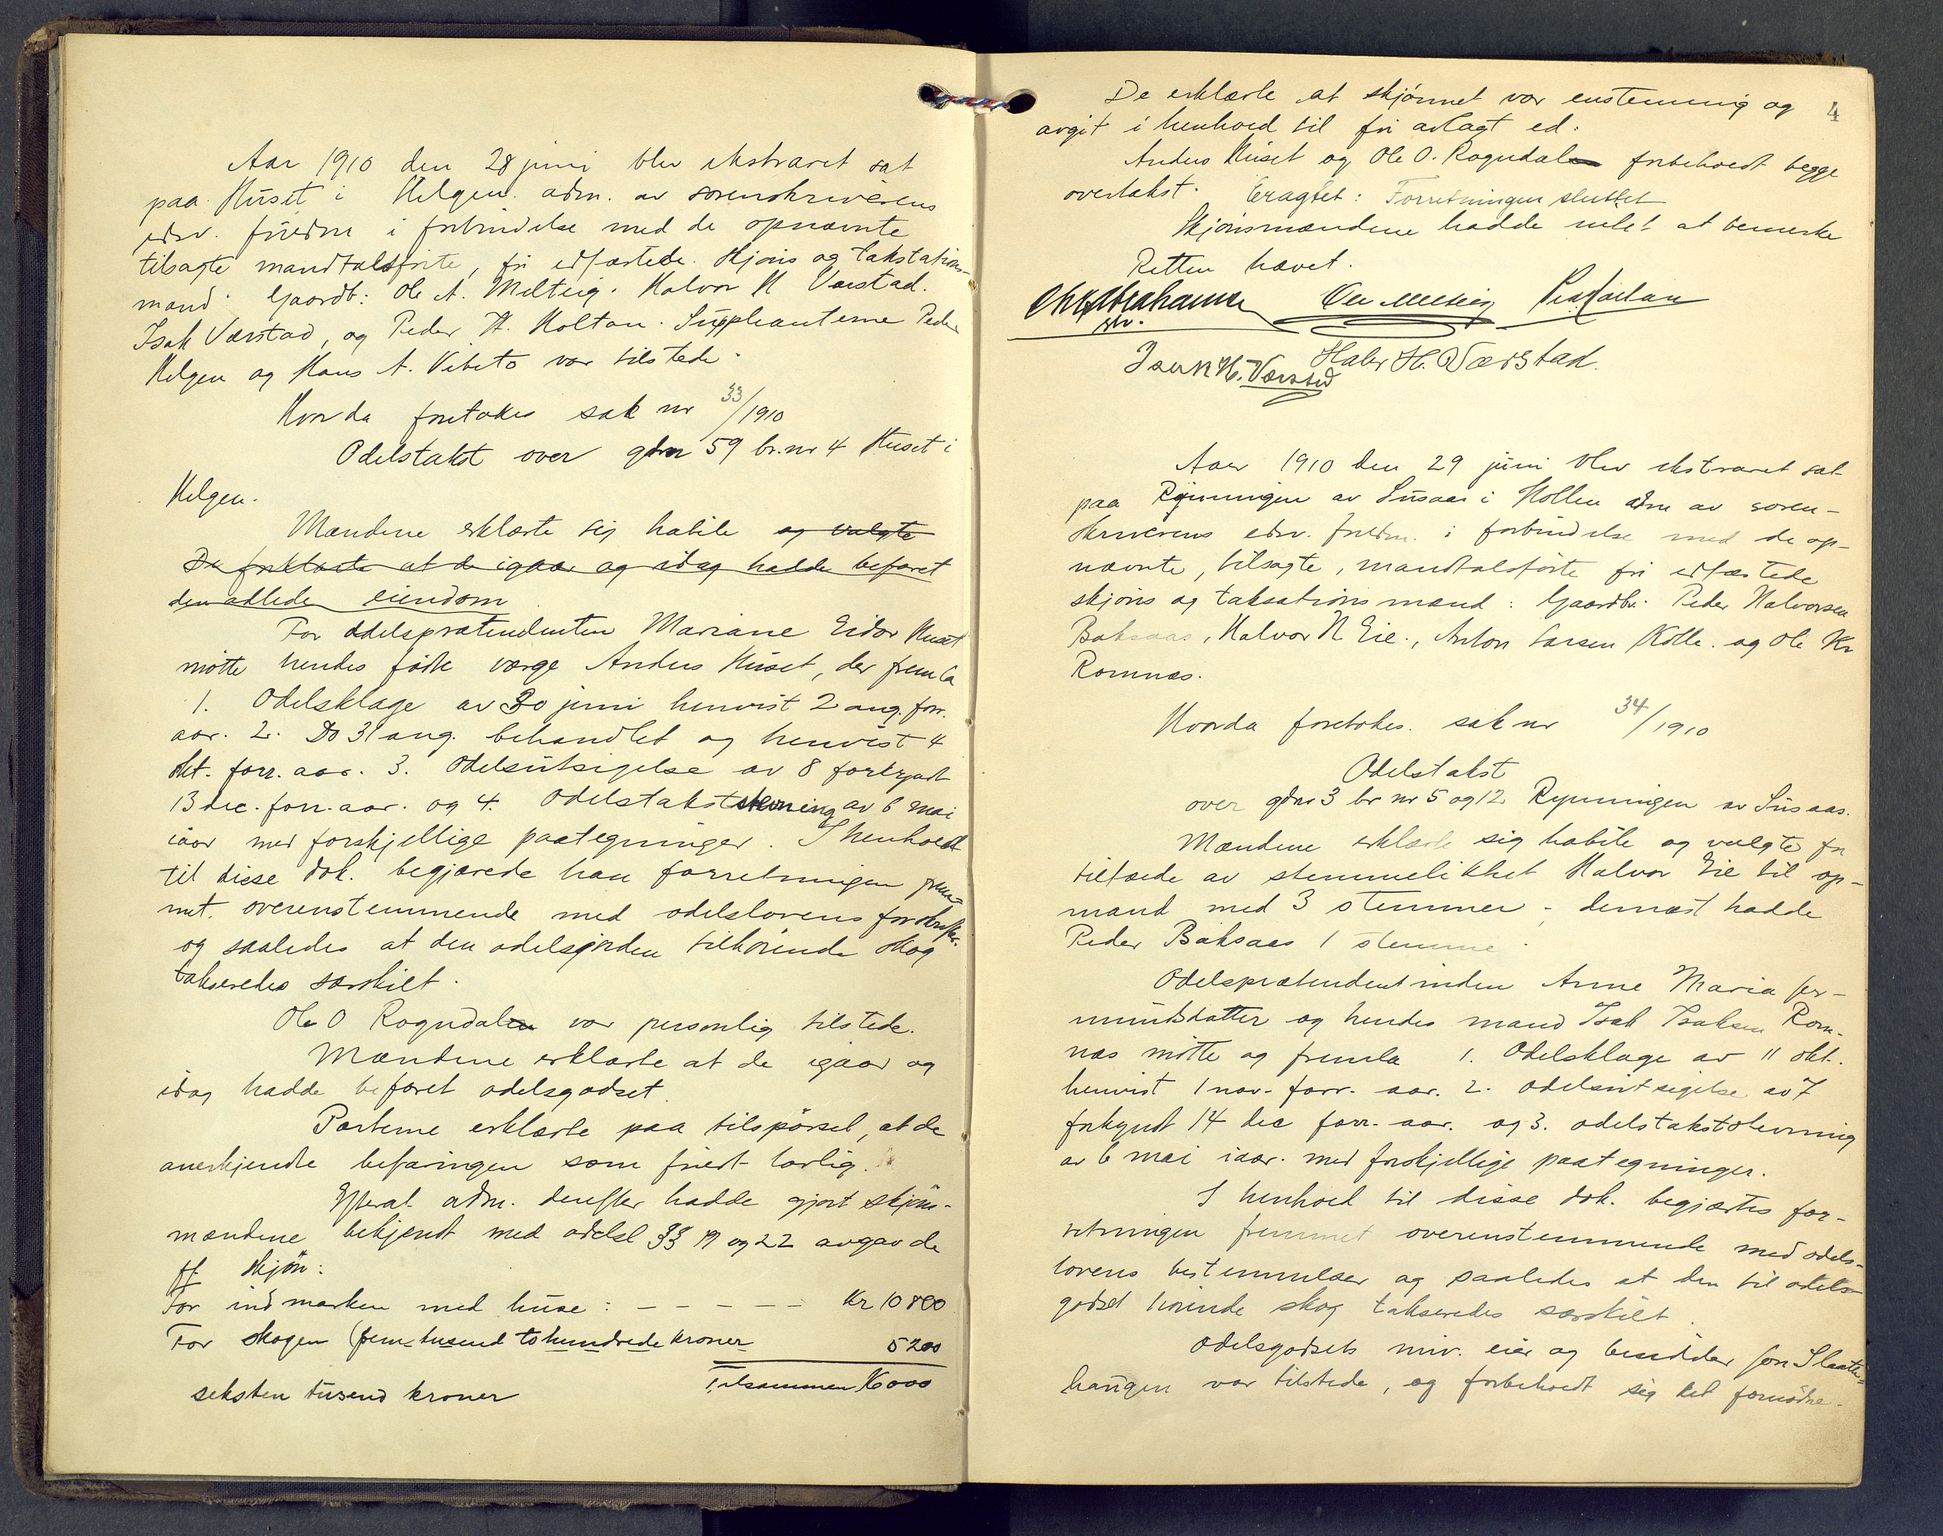 Aar 1910 den 28 juni blev ekstraret sat
paa Huset i Helgen adm. av sorenskriverens
edsv. fuldm i forbindelse med de opnævnte
tilsagte mandtalsførte, fri edfæstede. Skjøns og takstations-
mænd: Gaardb: Ole A. Melteig. Halvor H Værstad.
Isak Værstad, og Peder H. Holtan. Suppleanterne Peder
Helgen og Hans A. Vibeto var tilstede.
Hvorda foretokes sak nr 33/1910
Odelstakst over gdnr 59 br.nr 4 Huset i
Helgen.
Mændene erklærte sig habile og valgte
De forklarte at de igaar og idag hadde befaret
den avlede eiendom
For odelsprætendenten Mariane Eidor Huset
møtte hendes fødte værge Anders Huset, der fremla
1. Odelsklage av 30 juni henvist 2 aug. forr.
aar. 2. Do 31 aug. behandlet og henvist 4
okt. forr. aar. 3. Odelsutsigelse av 8 forkyndt
13 dec. forr. aar. og 4. Odelstakststevning av 6 mai
iaar med forskjellige paategninger. I henhold
til disse dok. begjærede han forretningen frem-
met overenstemmende med odelslovens forskrifter.
og saaledes at den odelsjorden tilhørende skog
takseredes særskilt.
Ole O Rogndalen var personlig tilstede.
Mændene erklærte at de igaar og
idag hadde befaret odelsgodset.
Parterne erklærte paa tilspørsel, at de
anerkjendte befaringen som fuldt lovlig.
Efterat adm. derefter hadde gjort skjøns-
mændene bekjendt med odelsl §§ 19 og 22 avgav de
sl. skjøn:
For indmarken med huse: - - - - - Kr 10800
For skogen (fem tusend to hundrede kroner 5200
Tilsammen 16000
seksten tusend kroner
4
De erklærte at skjønnet var enstemmig og
avgit i henhold til før avlagt ed.
Anders Huset og Ole O. Rogndalen forbeholdt begge
overtakst. Eragtet: Forretningen sluttet
Skjønsmændene hadde intet at bemerke
Retten hævet.
Chr Abrahamsen Ole Melteig Peder Holtan
Isak H. Værstad Halvr H. Værstad.
Aar 1910 den 29 juni blev ekstraret sat
paa Rynningen av Susaas i Hollen adm av soren-
skriverens edsv. fuldm. i forbindelse med de op-
nævnte, tilsagte, mandtalsførte fri edfæstede
skjøns og taksationsmænd: Gaardbr. Peder Halvorsen
Baksaas, Halvor N Eie., Anton Larsen Kolle. og Ole Kr
Romnæs.
Hvorda foretokes. sak nr 34/1910
Odelstakst
over gdnr 3 br nr 5 og 12 Rynningen av Susaas.
Mændene erklærte sig habile og valgte for
tilfælde av stemmelikhet Halvor Eie til op-
mand med 3 stemmer - dernæst hadde
Peder Baksaas 1 stemme.
Odelsprætendentinden Anne Maria Jer-
mundsdatter og hendes mand Isak Isaksen Rom-
næs møtte og fremla 1. Odelsklage av 11 okt.
henvist 1 nov. forr. aar. 2. Odelsutsigelse av 7
forkyndt 14 dec forr. aar. og 3. odelstakststevning
av 6 mai iaar. med forskjellige paategninger.
I henhold til disse dok. begjærtes for-
retningen fremmet overenstemmende med odels-
lovens bestemmelser og saaledes at den til odels-
godset hørende skog takseredes særskilt.
Odelsgodsets nuv. eier og besidder Jon Slaatte-
haugen var tilstede, og forbeholdt sig det fornødne.